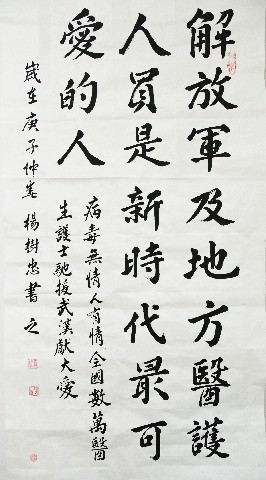 解放軍及地方醫護
人員是新時代最可
愛的人
病毒無情人有情全國數萬醫
生護士馳援武漢獻大愛
歲在庚子仲春楊樹忠書之